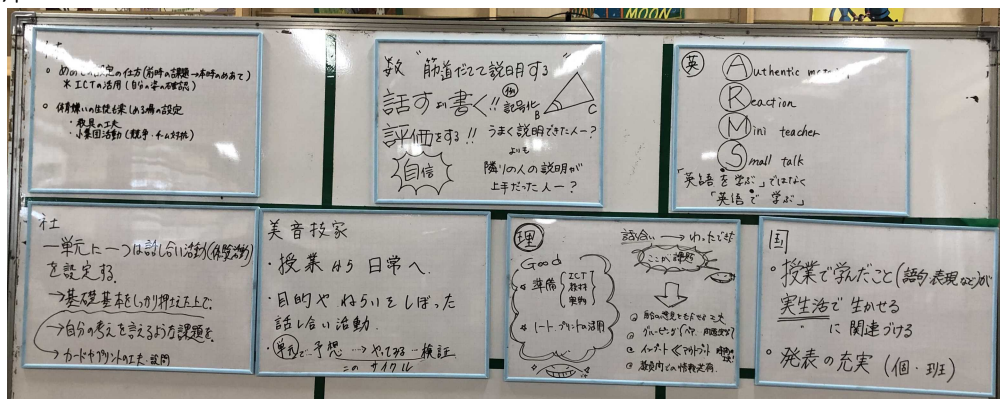 MOON
体
○ めあての設定の仕方(前時の課題→本時のめあて)
※ICTの活用(自分の姿の確認)
○ 体育嫌いの生徒も楽しめる場の設定
・教具の工夫
・小集団活動(競争・チーム対抗)
数 "筋道だてて説明する"
話す より 書く!! 例 記号化
A
B
C
評価をする!! うまく説明できた人ー?
よりも
自信
隣りの人の説明が
上手だった人ー?
英
Authentic
Reaction
Mini teacher
Small talk
「英語を学ぶ」ではなく
「英語で学ぶ」
社
一単元に一つは話し合い活動(体験活動)
を設定する.
→基礎基本をしっかり押さえた上で.
→自分の考えを言えるような課題を.
→カードやプリントの工夫.
美音技家
・授業から日常へ.
・目的やねらいをしぼった
話し合い活動.
・単元で 予想 …→ やってみる … 検証
このサイクル
理
Good
☆ 準備 ICT 教材 実物
☆ ノート、プリントの活用
話合い → わったできた
ここが課題
インプット ≪ アウトプット
国
○ 授業で学んだこと(語句・表現など)が
実生活で生かせる
に関連づける
○ 発表の充実(個・班)